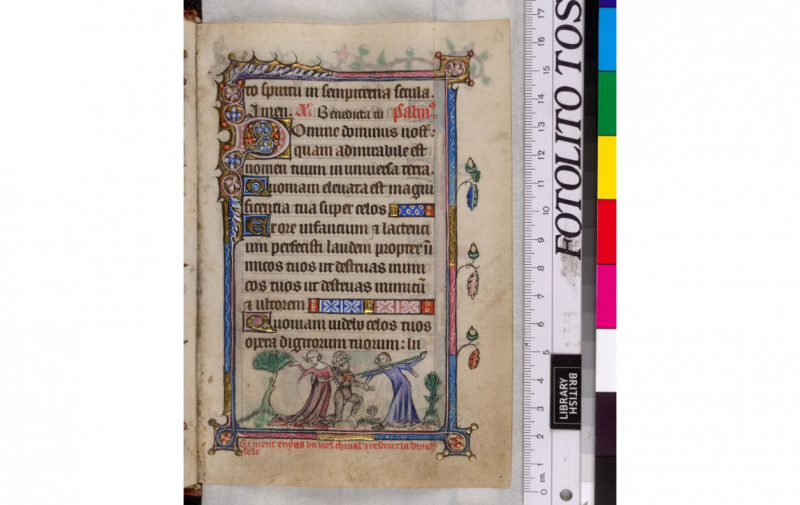 to spiritu in sempiterna secula.
Amen. Benedicta tu psalm⁹
Domine dominus nost̄:
quam admirabile est
nomen tuum in universa terra.
Quoniam elevata est magni
ficentia tua super celos
Ex ore infancium & lactenci
um perfecisti laudem propter ī
micos tuos ut destruas inimi
cos tuos ut destruas inimicū
& ultorem
Quoniam videbo celos tuos
opera digitorum tuorum: lu
FOTOLITO TOS
BRITISH
LIBRARY
17
16
15
14
13
12
11
10
9
8
7
6
5
4
3
2
1
0 cm.